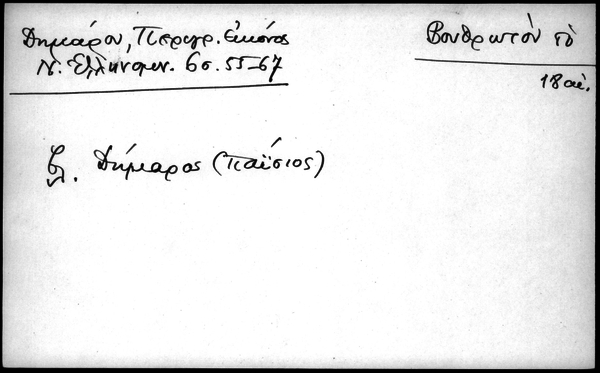 Δημάρου, Περιγρ. Εἰκόνος
Ν. Ἑλληνομν. 6σ. 55-67
Βουθρωτὸν τὸ
18 αἰ.
βλ. Δήμαρος (Παΐσιος)